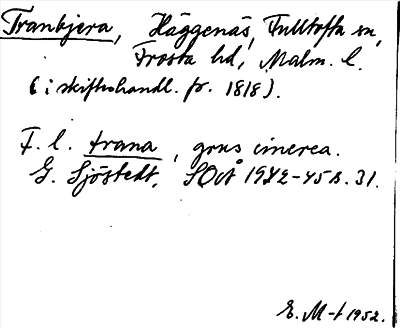 Trankjera, Häggenäs, Fulltofta sn,
Frosta hd, Malm. l.
(i skifteshandl. fr. 1818).
F. l. trana, grus cinerea.
G. Sjöstedt, SOÅ 1942-45 s. 31.
E. M-t 1952.